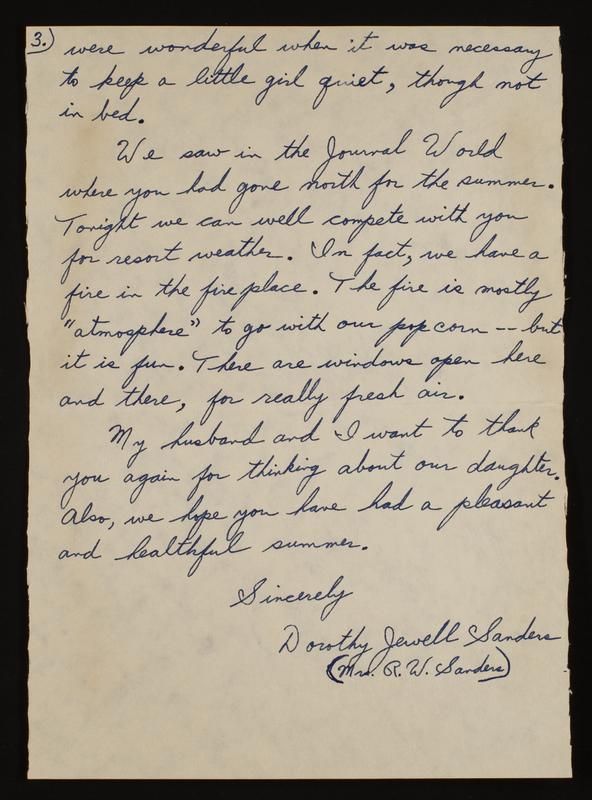 3.) were wonderful when it was necessary
to keep a little girl quiet, though not
in bed.
We saw in the Journal World
where you had gone north for the summer.
Tonight we can well compete with you
for resort weather. In fact, we have a
fire in the fireplace. The fire is mostly
"atmosphere" to go with our popcorn -- but
it is fun. There are windows open here
and there, for really fresh air.
My husband and I want to thank
you again for thinking about our daughter.
Also, we hope you have had a pleasant
and healthful summer.
Sincerely
Dorothy Jewell Sanders
(Mrs. R. W. Sanders)